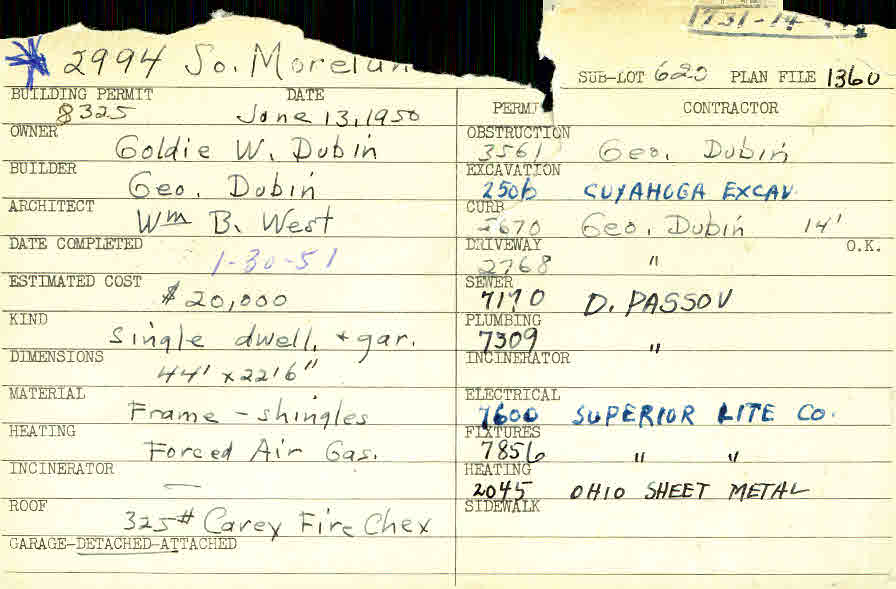 1731-14
2994 So. Morelan
SUB-LOT 620 PLAN FILE 1360
BUILDING PERMIT DATE
8325 June 13, 1950
OWNER
Goldie W. Dubin
BUILDER
Geo. Dubin
ARCHITECT
Wm B. West
DATE COMPLETED
1-30-51
ESTIMATED COST
$20,000
KIND
Single dwell. + gar.
DIMENSIONS
44' x 22'6"
MATERIAL
Frame - shingles
HEATING
Forced Air Gas.
INCINERATOR
—
ROOF
325# Carey Fire Chex
GARAGE-DETACHED-ATTACHED
PERMI CONTRACTOR
OBSTRUCTION
3561 Geo. Dubin
EXCAVATION
2506 CUYAHOGA EXCAV.
CURB
5670 Geo. Dubin 14'
DRIVEWAY O.K.
2768 "
SEWER
7170 D. PASSOV
PLUMBING
7309 "
INCINERATOR
ELECTRICAL
7600 SUPERIOR LITE CO.
FIXTURES
7856 " "
HEATING
2045 OHIO SHEET METAL
SIDEWALK